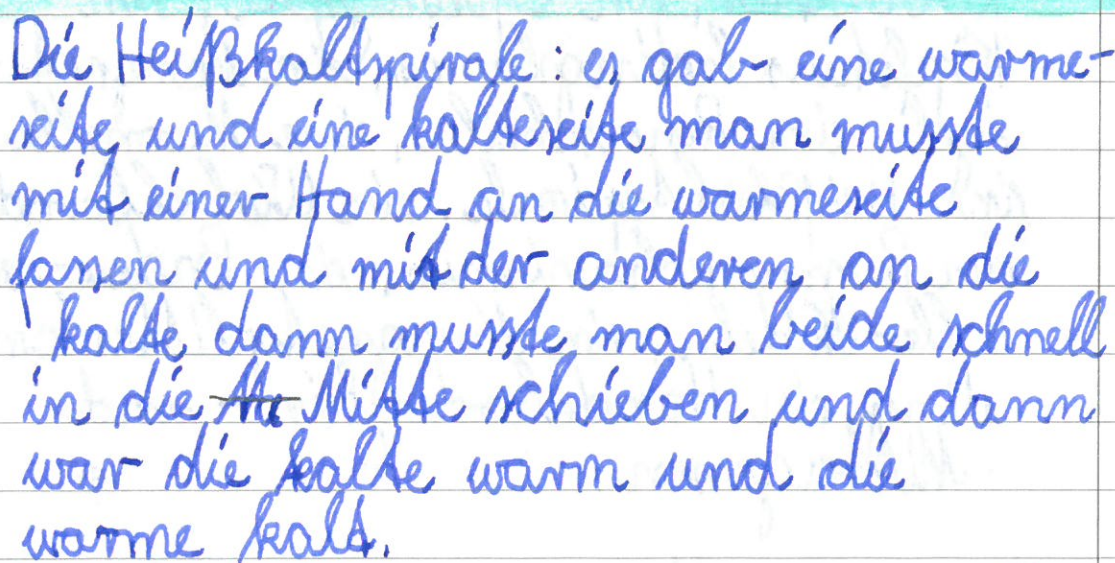 Die Heißkaltspirale: es gab eine warme-
seite und eine kalteseite man musste
mit einer Hand an die warmeseite
fassen und mit der anderen an die
kalte dann musste man beide schnell
in die Mitte schieben und dann
war die kalte warm und die
warme kalt.